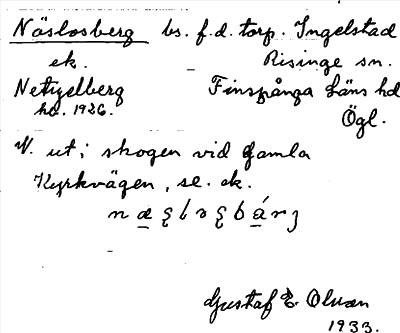 Näslosberg bs. f. d. torp. Ingelstad
ek. Risinge sn.
Finspånga läns hd
hd. 1926. Ögl.
N. ut i skogen vid Gamla
Kyrkvägen, se. ek.
Gustaf E. Olson
1933.